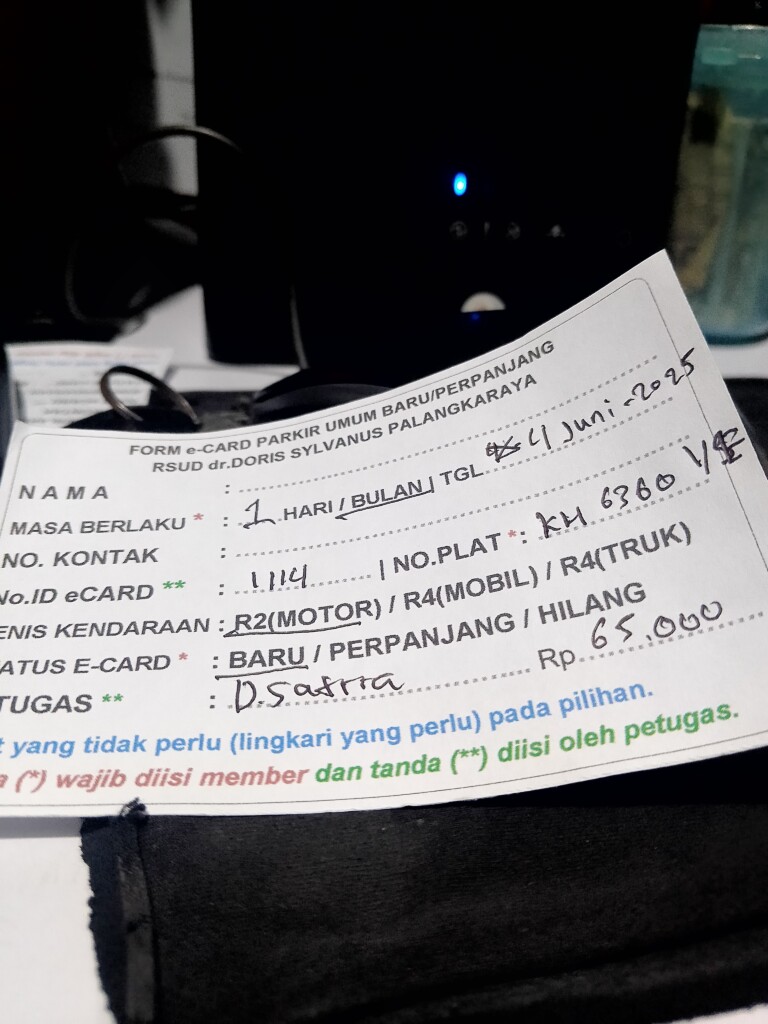 FORM e-CARD PARKIR UMUM BARU/PERPANJANG
RSUD dr.DORIS SYLVANUS PALANGKARAYA
NAMA :
MASA BERLAKU * : 1 HARI / BULAN | TGL 4 Juni-2025
NO. KONTAK :
No.ID eCARD ** : 1114 | NO.PLAT *: KH 6360
ENIS KENDARAAN : R2(MOTOR) / R4(MOBIL) / R4(TRUK)
ATUS E-CARD * : BARU / PERPANJANG / HILANG
TUGAS ** : D.Satria Rp 65.000
t yang tidak perlu (lingkari yang perlu) pada pilihan.
a (*) wajib diisi member dan tanda (**) diisi oleh petugas.